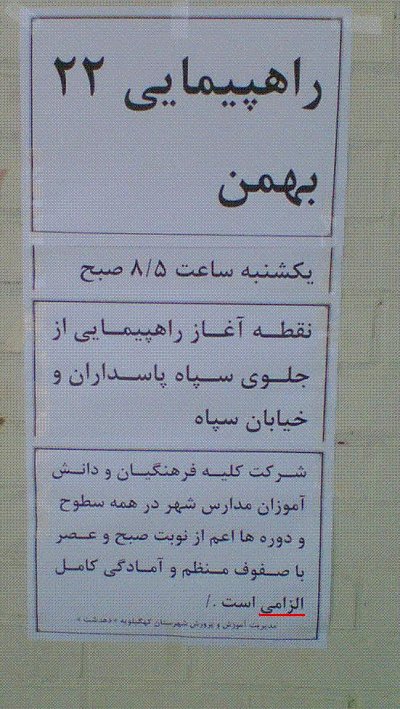 راهپیمایی ۲۲
بهمن
یکشنبه ساعت ۸/۵ صبح
نقطه آغاز راهپیمایی از
جلوی سپاه پاسداران و
خیابان سپاه
شرکت کلیه فرهنگیان و دانش
آموزان مدارس شهر در همه سطوح
و دوره ها اعم از نوبت صبح و عصر
با صفوف منظم و آمادگی کامل
الزامی است ./
مدیریت آموزش و پرورش شهرستان کهگیلویه » دهدشت «